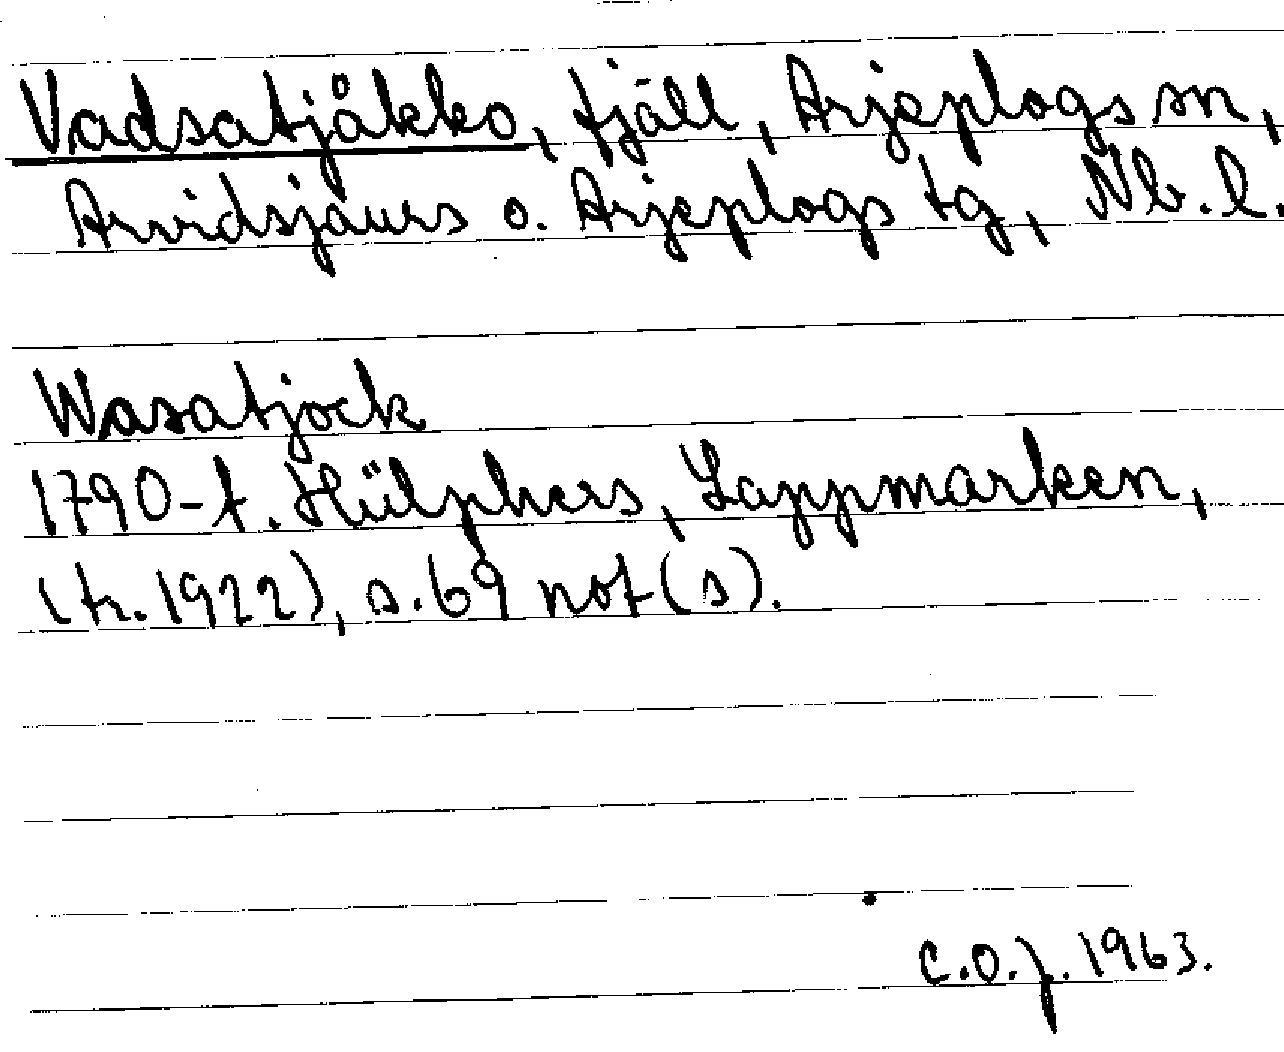 Vadsatjåkko, fjäll, Arjeplogs sn,
Arvidsjaurs o. Arjeplogs tg, Nb. l.
Wasatjock
1790-t. Hülphers, Lappmarken,
(tr. 1922), s. 69 not (s).
C.O.f. 1963.